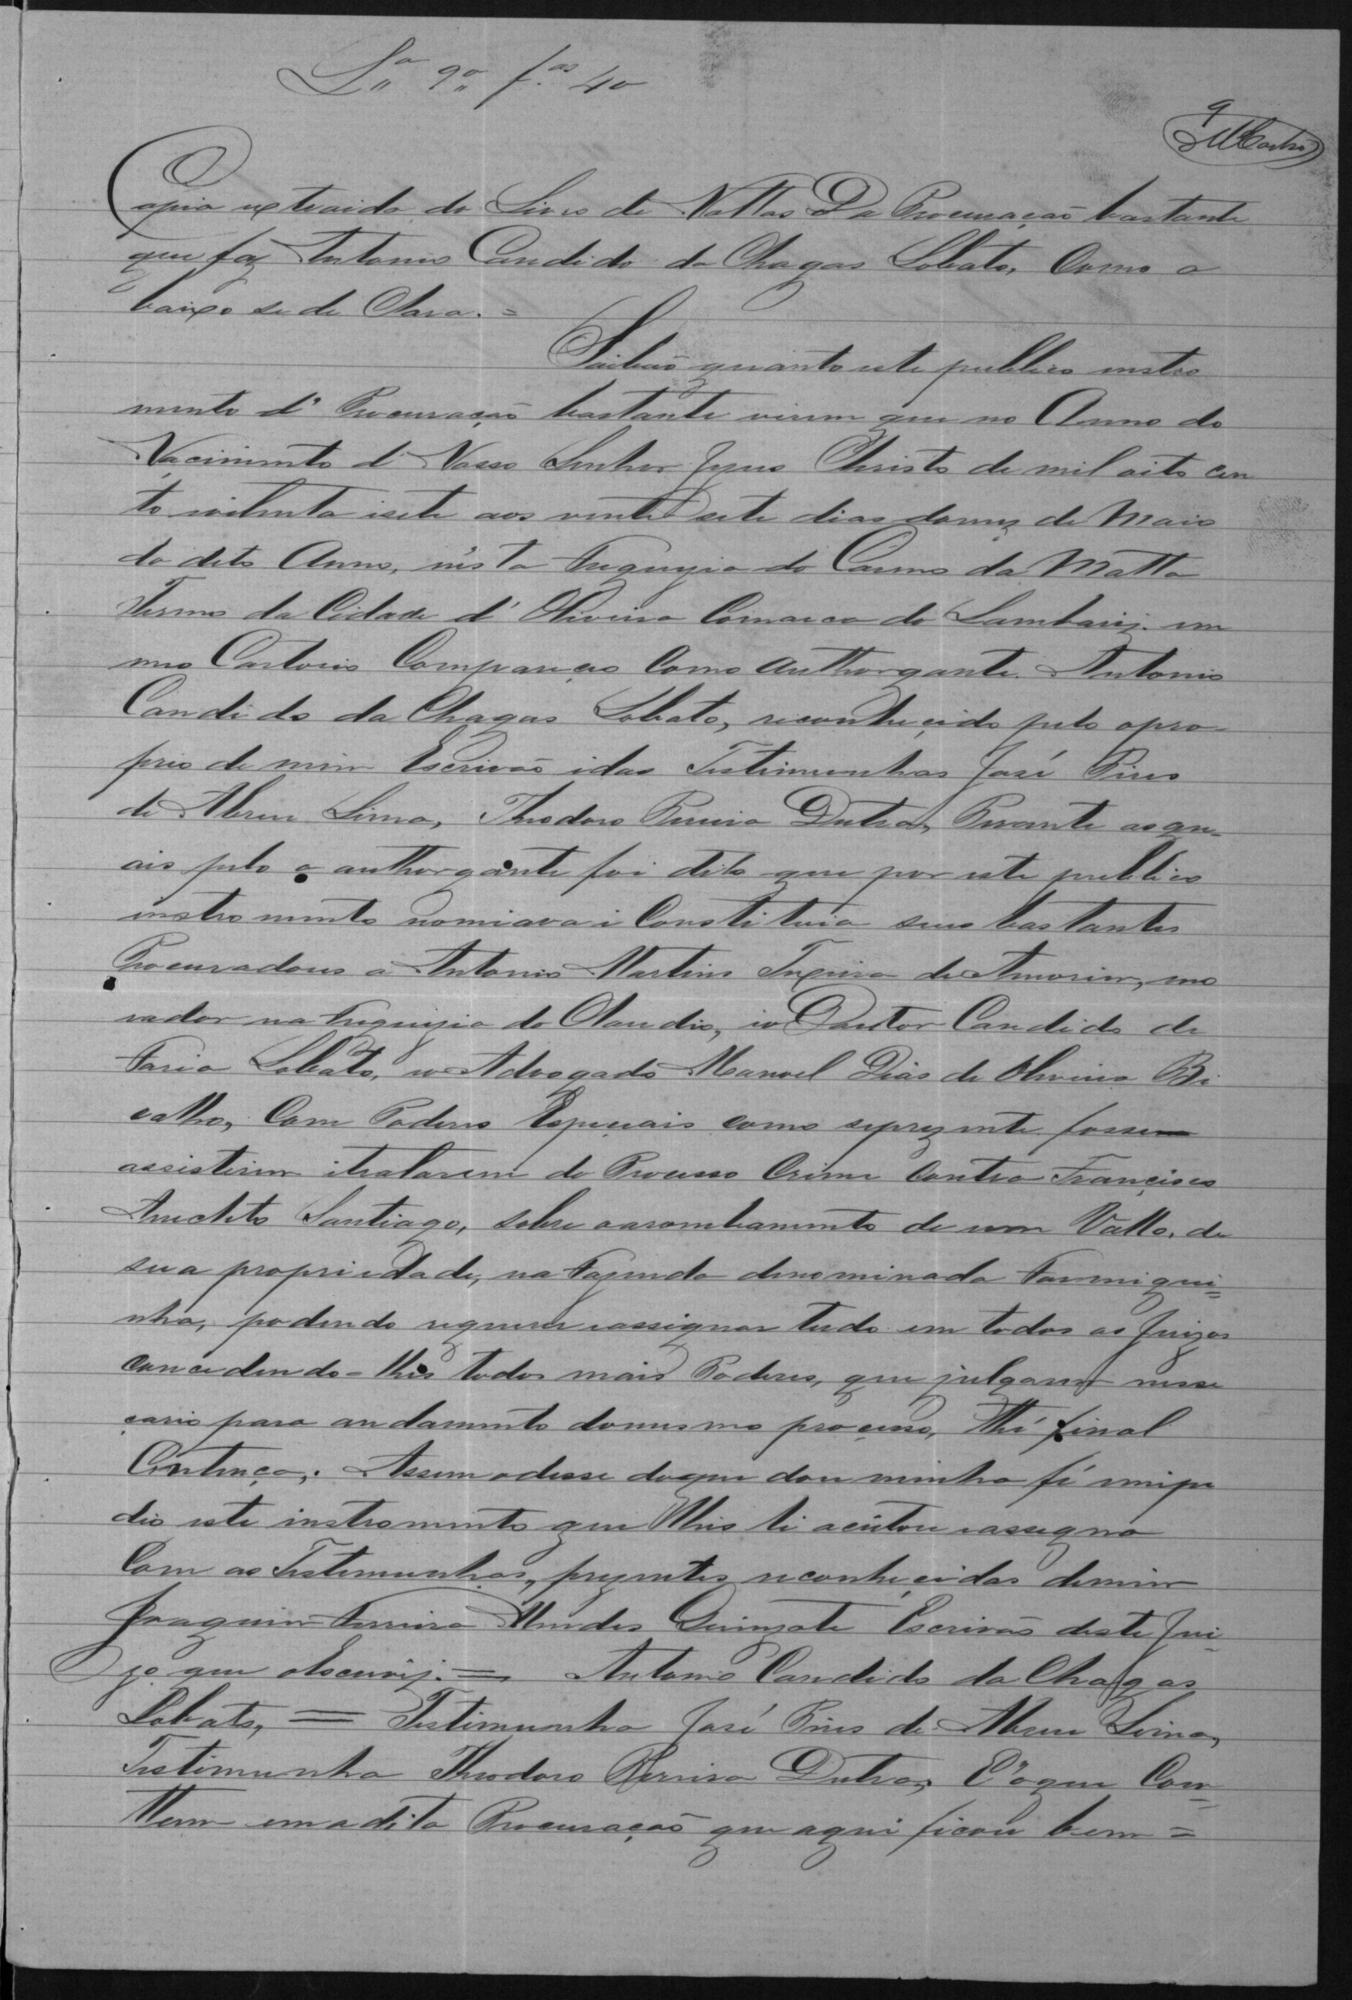 Lº 9º fªs 40
9
MCastro
Copia extraida do Livro de Nottas Da Procuração bastante
que faz Antonio Candido da Chagas Lobato, Como a
baixo se de Clara. =
Saibão quanto este publico instro
mento d' Procuração bastante virem que no Anno do
Nacimento d' Nosso Senhor Jezus Christo de mil oito cen
to ioitenta isete aos vinte sete dias domez de Maio
do dito Anno, nésta Freguezia do Carmo da Matta
Termo da Cidade d' Oliveira Comarca do Lambariz. em
meo Cartorio Compareçeo Como authorgante. Antonio
Candido da Chagas Lobato, reconheçido pelo opro-
prio de mim Escrivão idas Testimunhas José Pires
de Abreu Lima, Theodoro Pereira Dutra, Perante asqu-
ais pelo o authorgante foi dito que por este publico
instromento nomiava i Constituia seus bastantes
Procuradores a Antonio Martins Texeira de Amorim, mo
rador na Freguizia do Claudio, io Doutor Candido de
Faria Lobato, io Advogado Manoel Dias de Oliveira Bi
calho, Com Poderes Espiciais como seprezente fossem
assistirem itratarem do Processo Crime Contra Françisco
Anecleto Santiago, sobre oarombamento de um Vallo, de
sua propriedade, na Fazenda denominada Formigui=
nha, podendo requerer iassignar tudo em todos os Juizos
concedendo-lhes todos mais Poderes, que julgarem nesse
çario para andamento domesmo proçeso, thé final
Centença,. Assim odisse doque dou minha fé imipe
dio este instromento que lhis li aceitou iassegna
Com as Testemunhas, prezentes reconheçidas demim
Joaquim Ferreira Mendes Escrivão deste Jui-
zo que obscuvij. = Antonio Candido da Chagas
Lobato, = Testimunha José Pires de Abreu Lima,
Testimunha Theodoro Perreira Dutra, E'oque Con=
them emadita Procuração que aqui ficou bem =